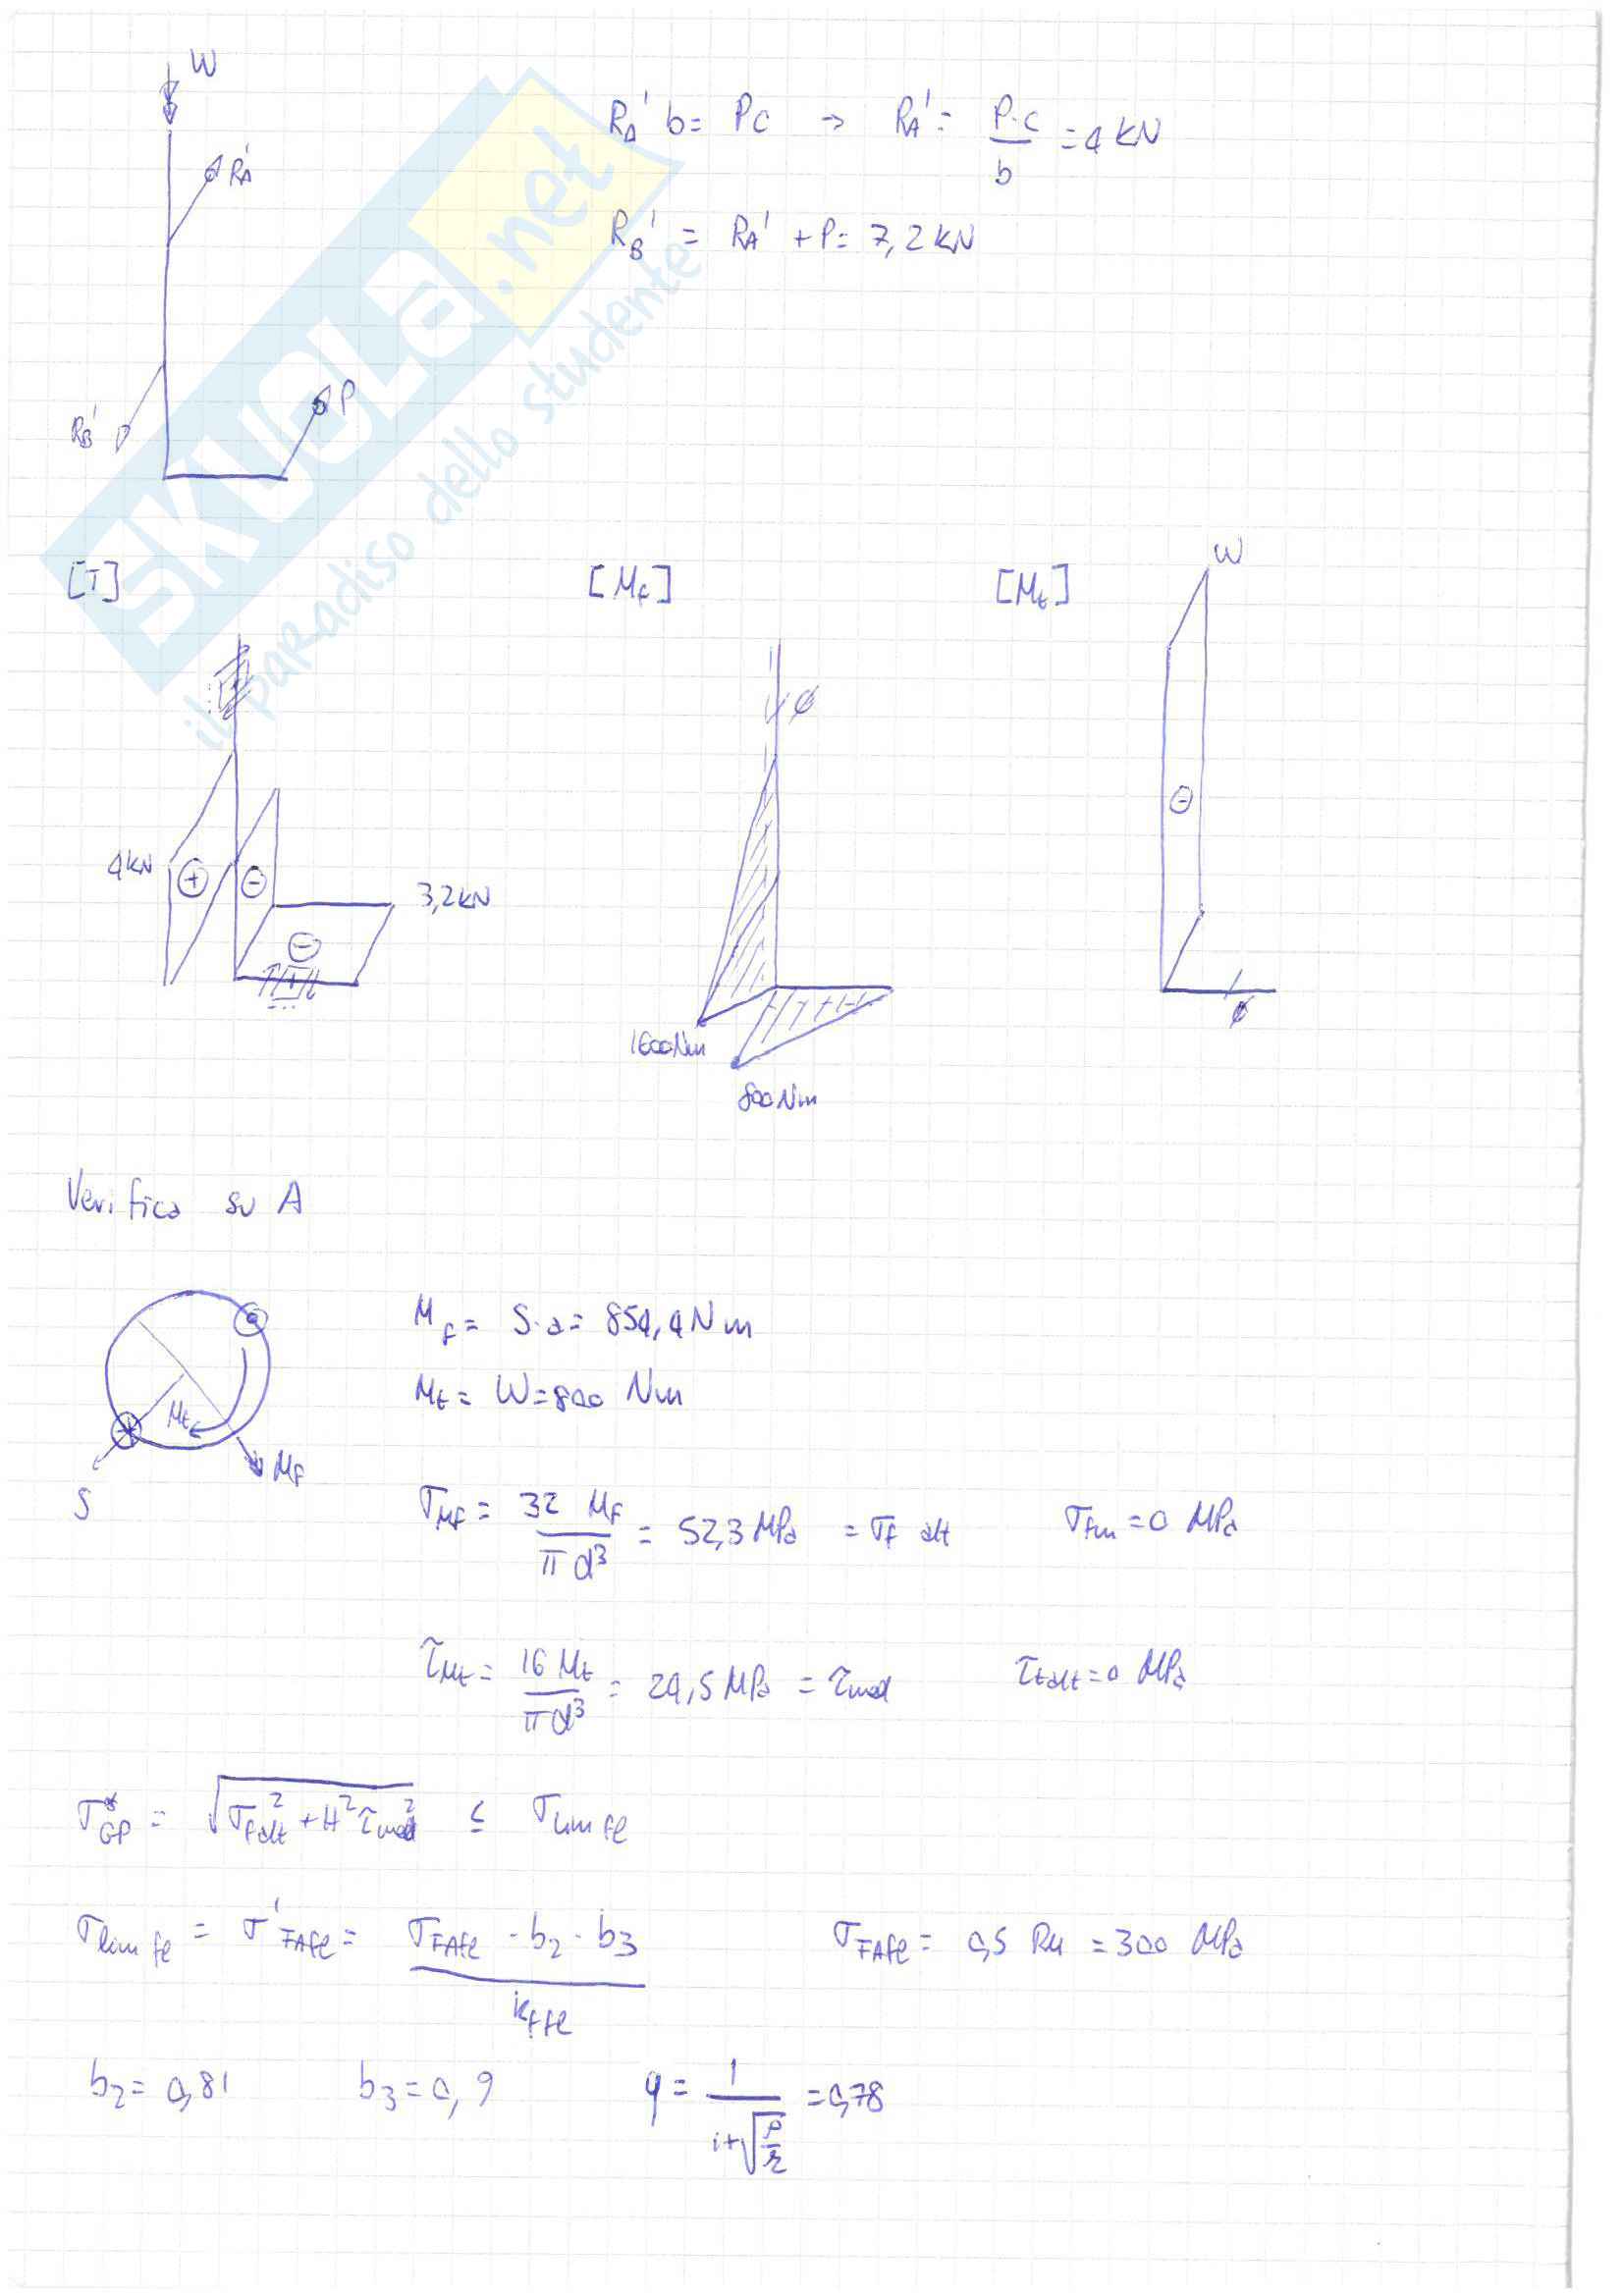 W
R_A' b = Pc → R_A' = P·c / b = 4 kN
R_A'
R_B' = R_A' + P = 7,2 kN
P
R_B'
SKUOLA.net
il paradiso dello studente
[T] [M_f] [M_t]
W
ø
4kN + - 3,2kN
-
-
1600Nm
ø
800Nm
Verifica su A
M_f = S·a = 854,4 Nm
M_t = W = 800 Nm
M_t
M_f
S
σ_Mf = 32 M_f / π d³ = 52,3 MPa = σ_f alt σ_fm = 0 MPa
τ_Mt = 16 M_t / π d³ = 24,5 MPa = τ_med τ_t alt = 0 MPa
σ*_GP = √(σ_f alt² + H² τ_med²) ≤ σ_lim fl
σ_lim fl = σ'_FAfl = σ_FAfl · b₂ · b₃ / k_ffl σ_FAfl = 0,5 Rm = 300 MPa
b₂ = 0,81 b₃ = 0,9 q = 1 / 1+√(ρ/r) = 0,78